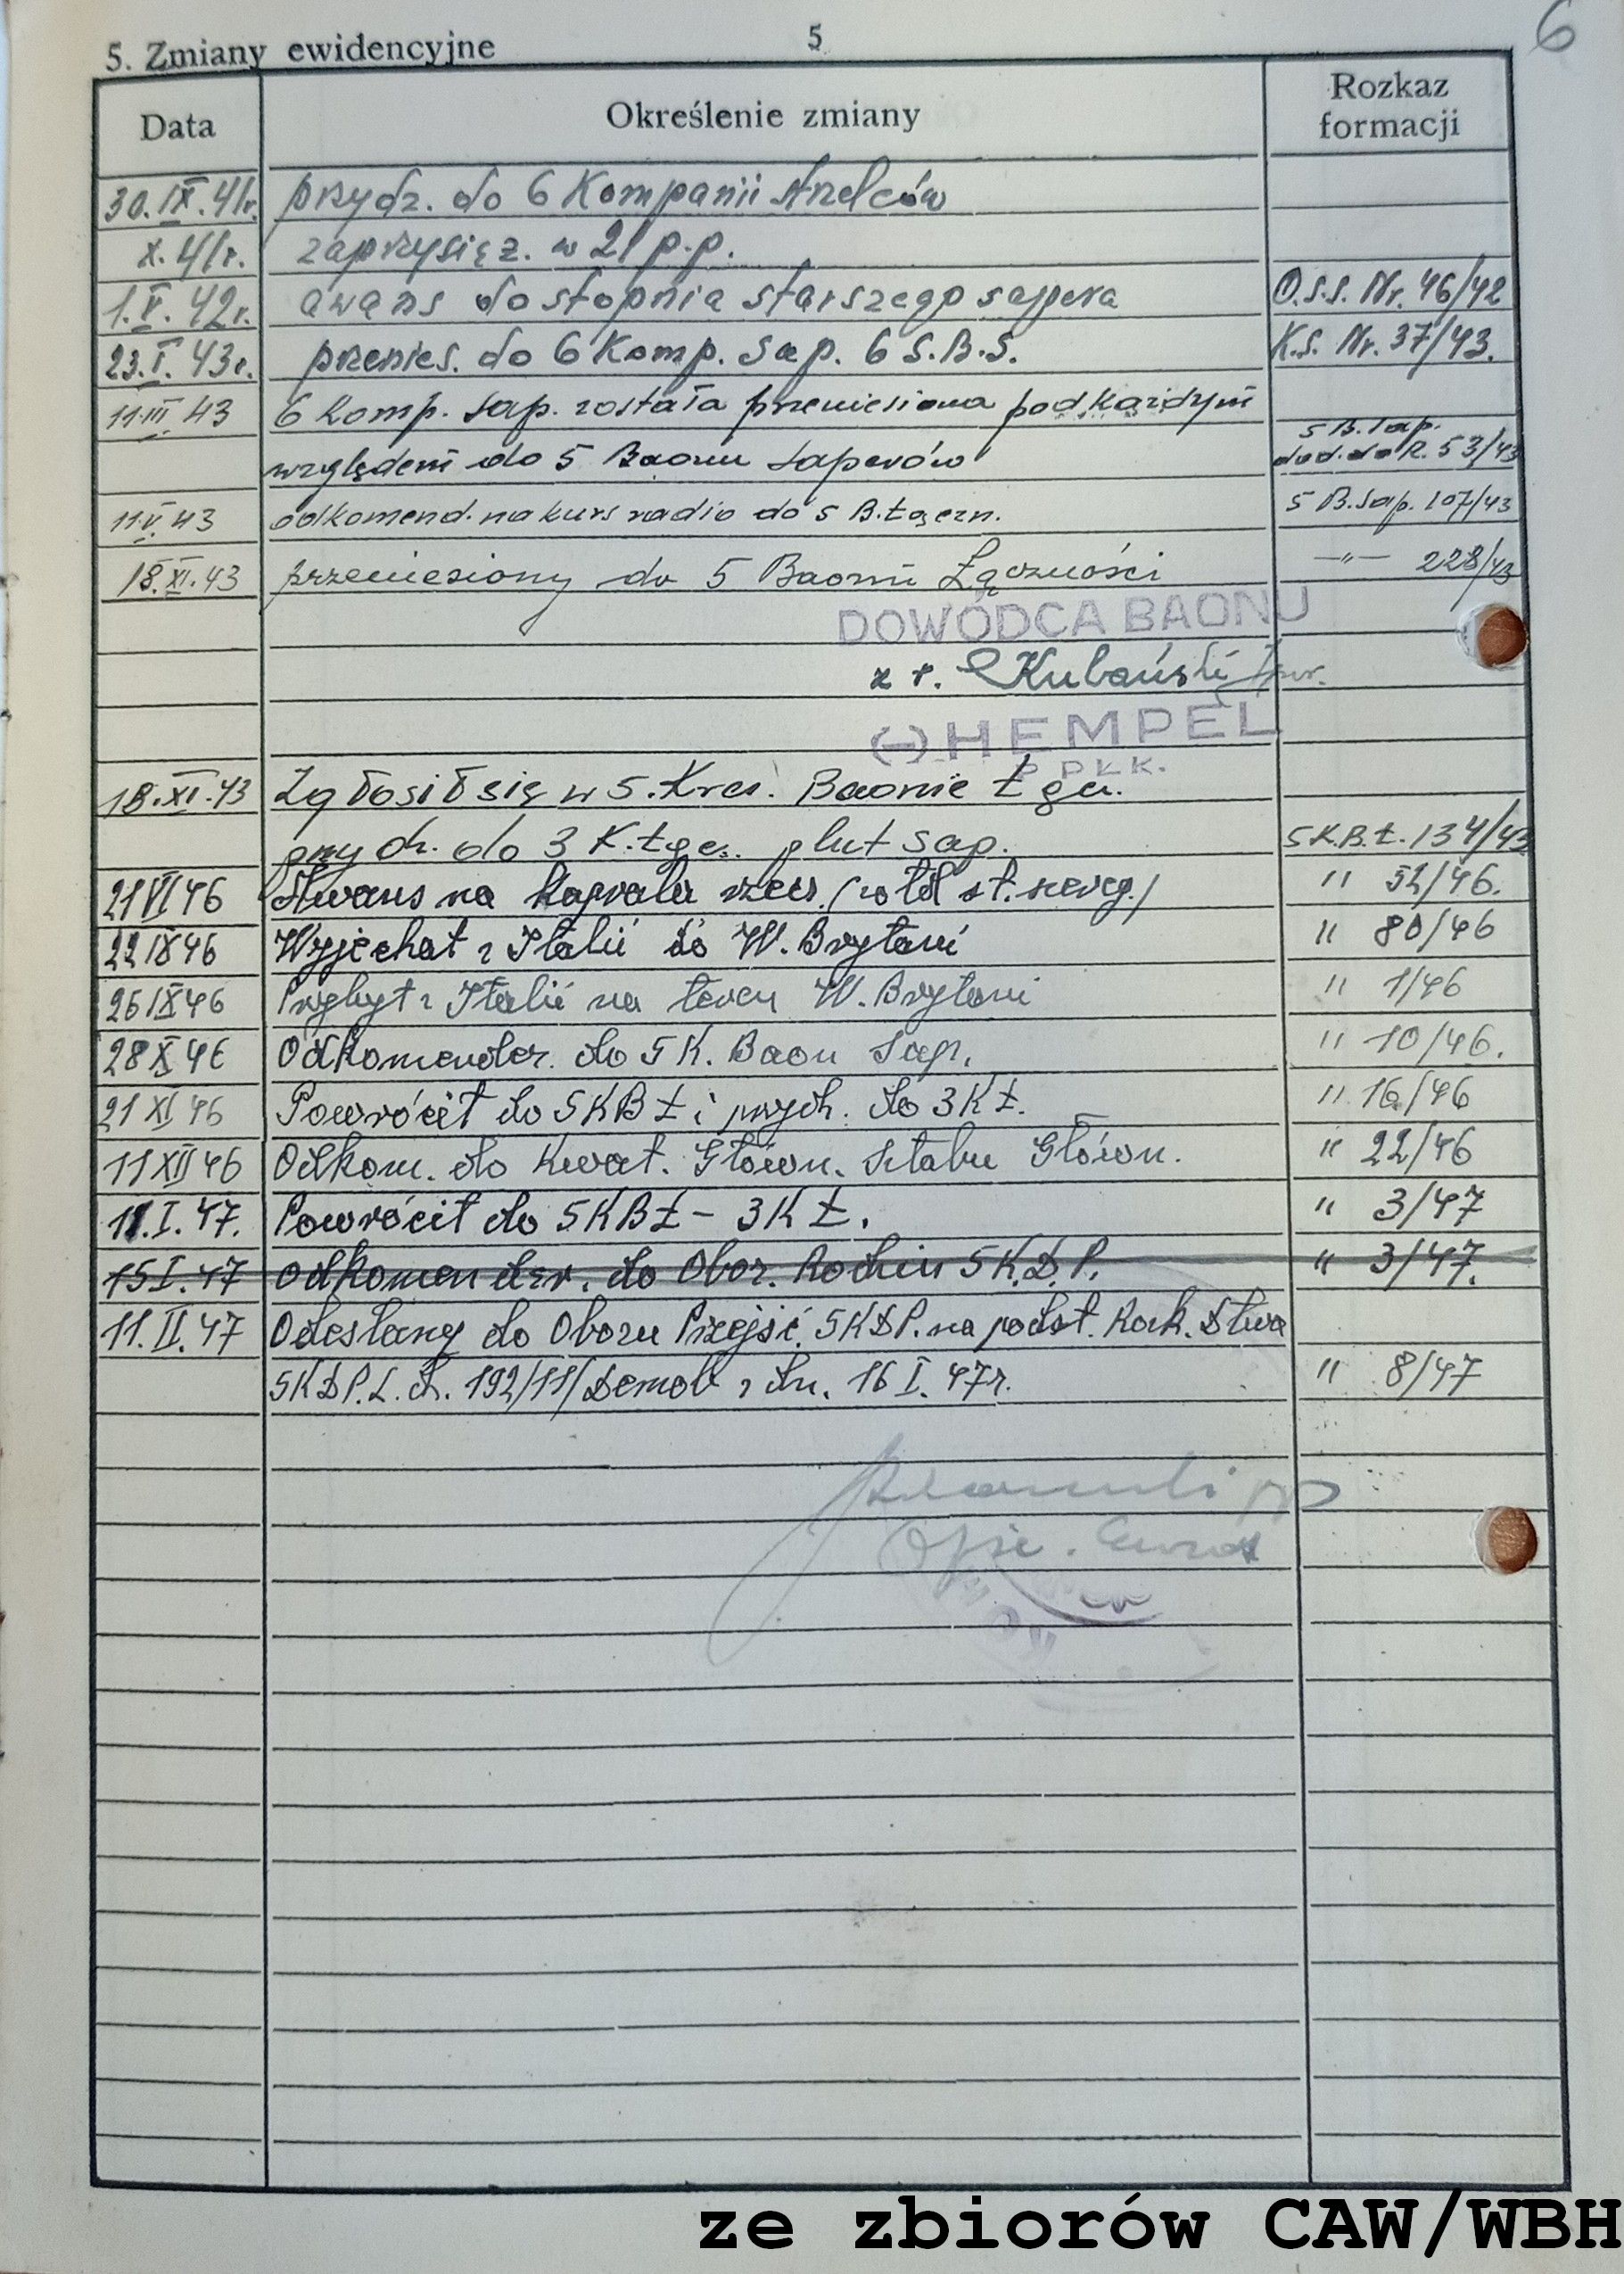 6
5. Zmiany ewidencyjne 5
Data Określenie zmiany Rozkaz formacji
30.IX.41r. przydz. do 6 Kompanii strzelców
X.41r. zaprzysięż. w 21 p.p.
1.V.42r. awans do stopnia starszego sapera O.S.S. Nr. 46/42
23.I.43r. przenies. do 6 Komp. Sap. 6 S.B.S. K.S. Nr. 37/43.
11.III.43 6 Komp. Sap. została przeniesiona pod każdym
względem do 5 Baonu Saperów 5 B.Sap. dod. do R. 53/43
11.V.43 odkomend. na kurs radio do 5 B.Łączn. 5 B.Sap. 107/43
18.XI.43 przeniesiony do 5 Baonu Łączności —„— 228/43
DOWÓDCA BAONU
z r. Kubański
(-) HEMPEL
PPŁK.
18.XI.43 Zgłosił się w 5. Kres. Baonie Łącz.
przydz. do 3 K.Łącz. plut Sap. 5K.B.Ł. 134/43
21 VI 46 Awans na kaprala rzecz. ( st. szereg.) " 52/46.
22 IX 46 Wyjechał z Italii do W. Brytani " 80/46
26 IX 46 Przybył z Italii na teren W. Brytani " 1/46
28 X 46 Odkomender. do 5 K. Baon Sap. " 10/46.
21 XI 46 Powrócił do 5KBŁ i przydz. do 3KŁ. " 16/46
11 XII 46 Odkom. do Kwat. Główn. Sztabu Główn. " 22/46
11.I.47. Powrócił do 5KBŁ - 3KŁ. " 3/47
15 I.47 Odkomender. do Oboz. Rodzin 5K.D.P. " 3/47.
11.II.47 Odesłany do Obozu Przejść. 5KDP. na podst. Rozk. Dtwa
5KDP. L.dz. 192/11/Demob z dn. 16 I. 47r. " 8/47
Ofic. Ewid
ze zbiorów CAW/WBH